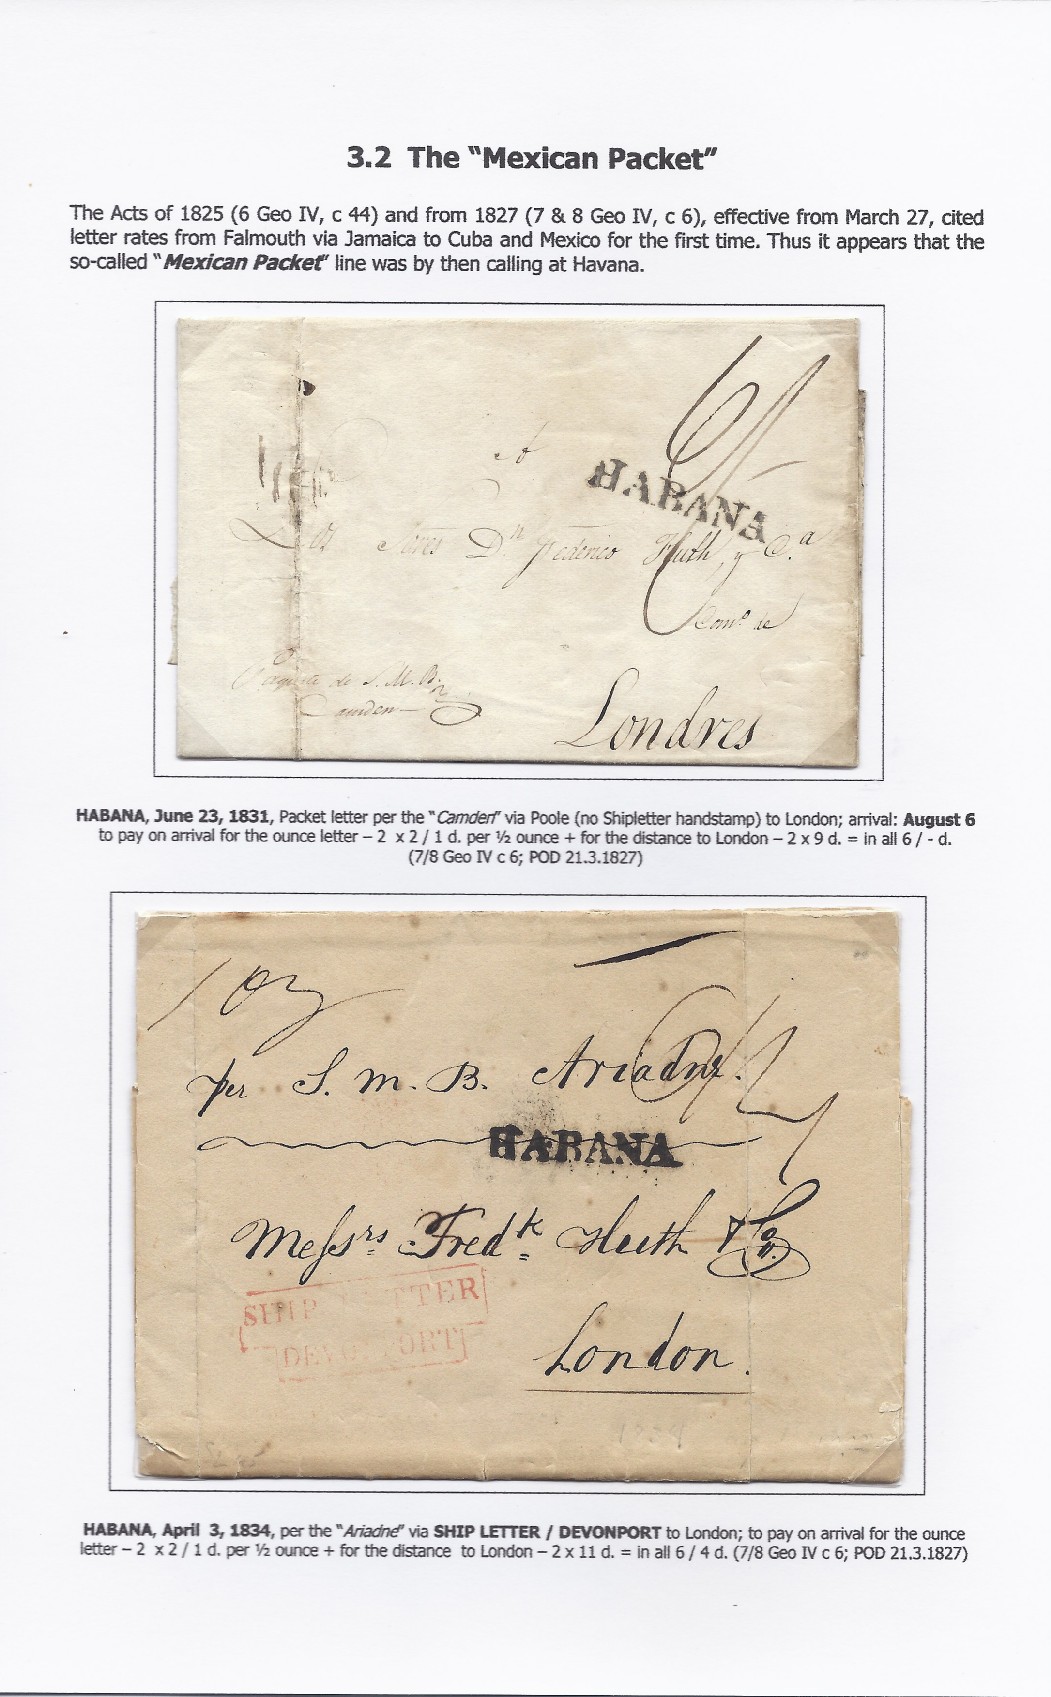 3.2 The "Mexican Packet"
The Acts of 1825 (6 Geo IV, c 44) and from 1827 (7 & 8 Geo IV, c 6), effective from March 27, cited
letter rates from Falmouth via Jamaica to Cuba and Mexico for the first time. Thus it appears that the
so-called "Mexican Packet" line was by then calling at Havana.
A
HABANA
Los Sores Dn Federico Huth, y Ca.
Como de
Paquete de S. M. B.
Camden
Londres
HABANA, June 23, 1831, Packet letter per the "Camden" via Poole (no Shipletter handstamp) to London; arrival: August 6
to pay on arrival for the ounce letter – 2 x 2 / 1 d. per ½ ounce + for the distance to London – 2 x 9 d. = in all 6 / - d.
(7/8 Geo IV c 6; POD 21.3.1827)
1 oz
6/4
per S. M. B. Ariadne.
HABANA
Messrs Fredk Huth & Co.
SHIP LETTER
DEVONPORT
London.
HABANA, April 3, 1834, per the "Ariadne" via SHIP LETTER / DEVONPORT to London; to pay on arrival for the ounce
letter – 2 x 2 / 1 d. per ½ ounce + for the distance to London – 2 x 11 d. = in all 6 / 4 d. (7/8 Geo IV c 6; POD 21.3.1827)